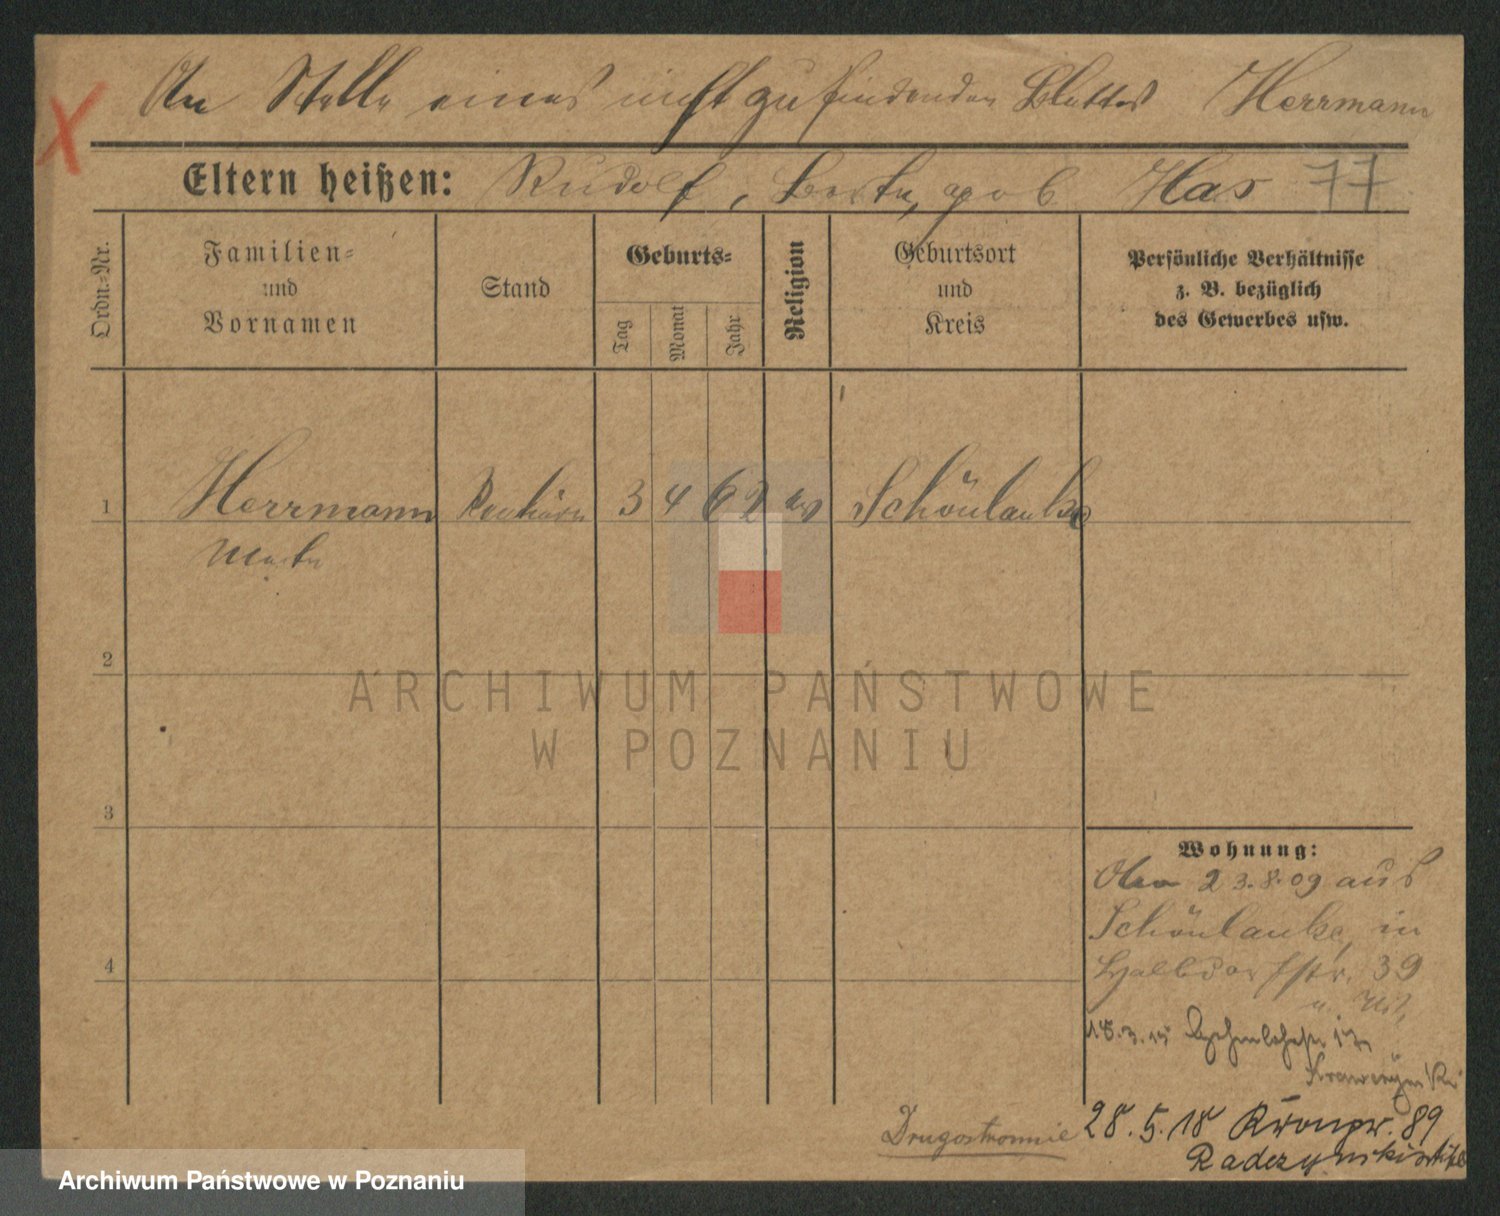 An Stelle eines nicht zu findenden Blattes Herrmann
Eltern heißen: Rudolf, Berta, geb Has 77
Ordn.=Nr.
Familien=
und
Vornamen
Stand
Geburts=
Tag
Monat
Jahr
Religion
Geburtsort
und
Kreis
Persönliche Verhältnisse
z. B. bezüglich
des Gewerbes usw.
1 Herrmann 3 4 62 Schönlanke
2
3
4
Wohnung:
23.8.09 aus
Schönlanke, in
str. 39
18.3.15
28.5.18 Kronpr. 89
Drugostronnie
ARCHIWUM PAŃSTWOWE
W POZNANIU
Archiwum Państwowe w Poznaniu